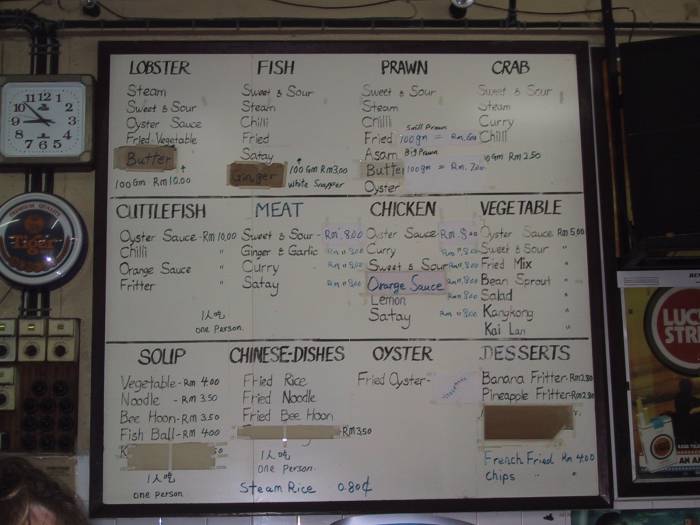 LOBSTER
Steam
Sweet & Sour
Oyster Sauce
Fried Vegetable
Butter
100 Gm Rm 10.00
FISH
Sweet & Sour
Steam
Chilli
Fried
Satay
Ginger
100 Gm Rm 3.00
White Snapper
PRAWN
Sweet & Sour
Steam
Chilli
Small Prawn
Fried 100gm = Rm. 6.00
Asam Big Prawn
Butter 100gm = Rm. 7.00
Oyster
CRAB
Sweet & Sour
Steam
Curry
Chilli
100 Gm Rm 2.50
CUTTLEFISH
Oyster Sauce - Rm 10.00
Chilli "
Orange Sauce "
Fritter "
1人吃
one Person.
MEAT
Sweet & Sour - Rm 8.00
Ginger & Garlic Rm " 8.00
Curry Rm " 8.00
Satay Rm " 8.00
CHICKEN
Oyster Sauce Rm 8.00
Curry Rm " 8.00
Sweet & Sour Rm " 8.00
Orange Sauce Rm " 8.00
Lemon Rm " 8.00
Satay Rm " 8.00
VEGETABLE
Oyster Sauce Rm 5.00
Sweet & Sour "
Fried Mix "
Bean Sprout "
Salad "
Kangkong "
Kai Lan "
SOUP
Vegetable - Rm 4.00
Noodle - Rm 3.50
Bee Hoon - Rm 3.50
Fish Ball - Rm 4.00
K
1人吃
one person
CHINESE-DISHES
Fried Rice
Fried Noodle
Fried Bee Hoon
Rm 3.50
1人吃
one Person.
Steam Rice 0.80¢
OYSTER
Fried Oyster -
DESSERTS
Banana Fritter - Rm 2.80
Pineapple Fritter - Rm 2.80
French Fried Rm 4.00
Chips " "
12
1
2
3
4
5
6
7
8
9
10
11
PREMIUM QUALITY
Tiger
LUCKY
STRIKE